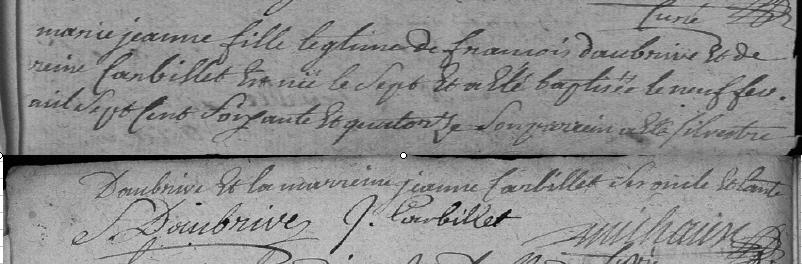 Curé
marie jeanne fille legtime de francois daubrive Et de
reine Carbillet Est néé le Sept Et a Eté baptisée le neuf fev.
mil Sept Cent Soixante Et quatorze Son parrein a Eté Silvestre
Daubrive Et la marreine jeanne Carbillet Ses oncle Et tante
S. Daubrive J. Carbillet